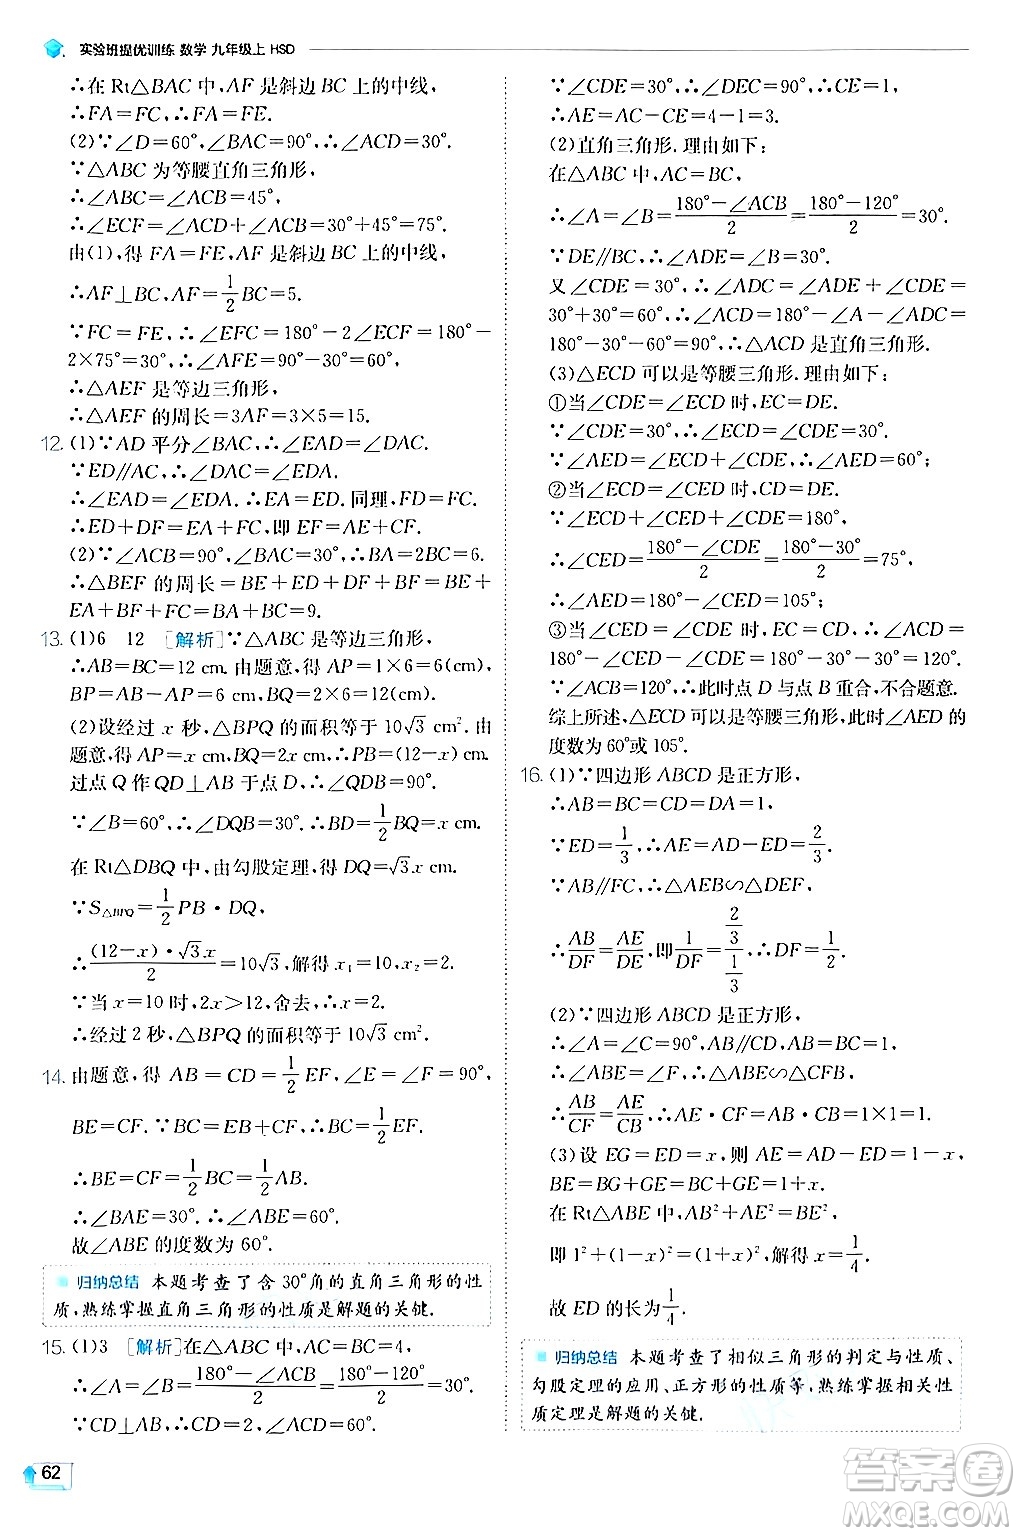 实验班提优训练 数学 九年级上 HSD
∴在 Rt△BAC 中,AF 是斜边 BC 上的中线,
∴FA=FC,∴FA=FE.
(2)∵∠D=60°,∠CAD=90°,∴∠ACD=30°.
∵△ABC 为等腰直角三角形,
∴∠ABC=∠ACB=45°,
∴∠ECF=∠ACD+∠ACB=30°+45°=75°.
由(1),得 FA=FE,AF 是斜边 BC 上的中线,
∴AF⊥BC,AF=1/2BC=5.
∵FC=FE,∴∠EFC=180°-2∠ECF=180°-
2×75°=30°,∴∠AFE=90°-30°=60°,
∴△AEF 是等边三角形,
∴△AEF 的周长=3AF=3×5=15.
12. (1)∵AD 平分∠BAC,∴∠EAD=∠DAC.
∵ED∥AC,∴∠DAC=∠EDA.
∴∠EAD=∠EDA.∴EA=ED.同理,FD=FC.
∴ED+DF=EA+FC,即 EF=AE+CF.
(2)∵∠ABC=90°,∠ACB=30°,∴BA=6.
∴△BEF 的周长=BE+ED+DF+BF=BE+
EA+BF+FC=BA+BC=9.
13. (1)6 12 [解析]∵△ABC 是等边三角形,
∴AB=BC=12 cm.由题意,得 AP=1×6=6(cm),
BP=AB-AP=6 cm,BQ=2×6=12(cm).
(2)设经过 x 秒,△BPQ 的面积等于 10√3 cm².由
题意,得 AP=x cm,BQ=2x cm,∴PB=(12-x)cm.
过点 Q 作 QD⊥AB 于点 D,∴∠QDB=90°.
∵∠B=60°,∴∠DQB=30°.∴BD=1/2BQ=x cm.
在 Rt△DBQ 中,由勾股定理,得 DQ=√3x cm.
∵S△BPQ=1/2PB·DQ,
∴(12-x)·√3x/2=10√3,解得 x₁=10,x₂=2.
∵当 x=10 时,2x>12,舍去,∴x=2.
∴经过 2 秒,△BPQ 的面积等于 10√3 cm².
14. 由题意,得 AB=CD=1/2EF,∠E=∠F=90°,
BE=CF.∵BC=EB+CF=1/2EF.
∴BE=CF=1/2BC=1/2AB.
∴∠BAE=30°.∴∠ABE=60°.
故∠ABE 的度数为 60°.
归纳总结 本题考查了含 30°角的直角三角形的性
质,熟练掌握直角三角形的性质是解题的关键.
15. (1)3 [解析]在△ABC 中,AC=BC=4,
∴∠A=∠B=180°-∠ACB/2=180°-120°/2=30°.
∵CD⊥AB,∴CD=1/2BC=2.
∵∠CDE=30°,∴∠DEC=90°,∴CE=1,
∴AE=AC-CE=4-1=3.
(2)直角三角形.理由如下:
在△ABC 中,AC=BC,
∴∠A=∠B=180°-∠ACB/2=180°-120°/2=30°.
∵DE∥BC,∴∠ADE=∠B=30°.
又∠CDE=30°,∴∠ADC=∠ADE+∠CDE=
30°+30°=60°,∴∠ACD=180°-∠A-∠ADC=
180°-30°-60°=90°,∴△ACD 是直角三角形.
(3)△ECD 可以是等腰三角形.理由如下:
①当∠CDE=∠ECD 时,EC=DE.
∵∠CDE=30°,∴∠ECD=30°.
∵∠AED=∠ECD+∠CDE,∴∠AED=60°;
②当∠ECD=∠CED 时,CD=DE.
∵∠ECD+∠CED+∠CDE=180°,
∴∠CED=180°-∠CDE/2=180°-30°/2=75°,
∴∠AED=180°-∠CED=105°;
③当∠CED=∠CDE 时,EC=CD,∠ACD=
180°-∠CED-∠CDE=180°-30°-30°=120°.
∵∠ACB=120°,∴此时点 D 与点 B 重合,不合题意.
综上所述,△ECD 可以是等腰三角形,此时∠AED 的
度数为 60°或 105°.
16. (1)∵四边形 ABCD 是正方形,
∴AB=BC=CD=DA=1,
∵ED=1/3,∴AE=AD-ED=2/3.
∵AB∥FC,∴△AEB∽△DEF,
∴AB/DF=AE/DE,即1/DF=2/3/1/3,∴DF=1/2.
(2)∵四边形 ABCD 是正方形,
∴∠A=∠C=90°,AB∥CD,AB=BC=1
∴∠ABE=∠F,∴△ABE∽△CFB,
∴AB/CF=AE/CB,∴AE·CF=AB·CB=1×1=1.
(3)设 EG=ED=x,则 AE=AD-AE=1-x,
BE=BG+GE=BC+GE=1+x.
在 Rt△ABE 中,AB²+AE²=BE²,
即 1²+(1-x)²=(1+x)²,解得 x=1/4.
故 ED 的长为1/4.
归纳总结 本题考查了相似三角形的判定与性质、
勾股定理的应用、正方形的性质等,熟练掌握相关性
质定理是解题的关键.
62
答案圈
MXQE.COM